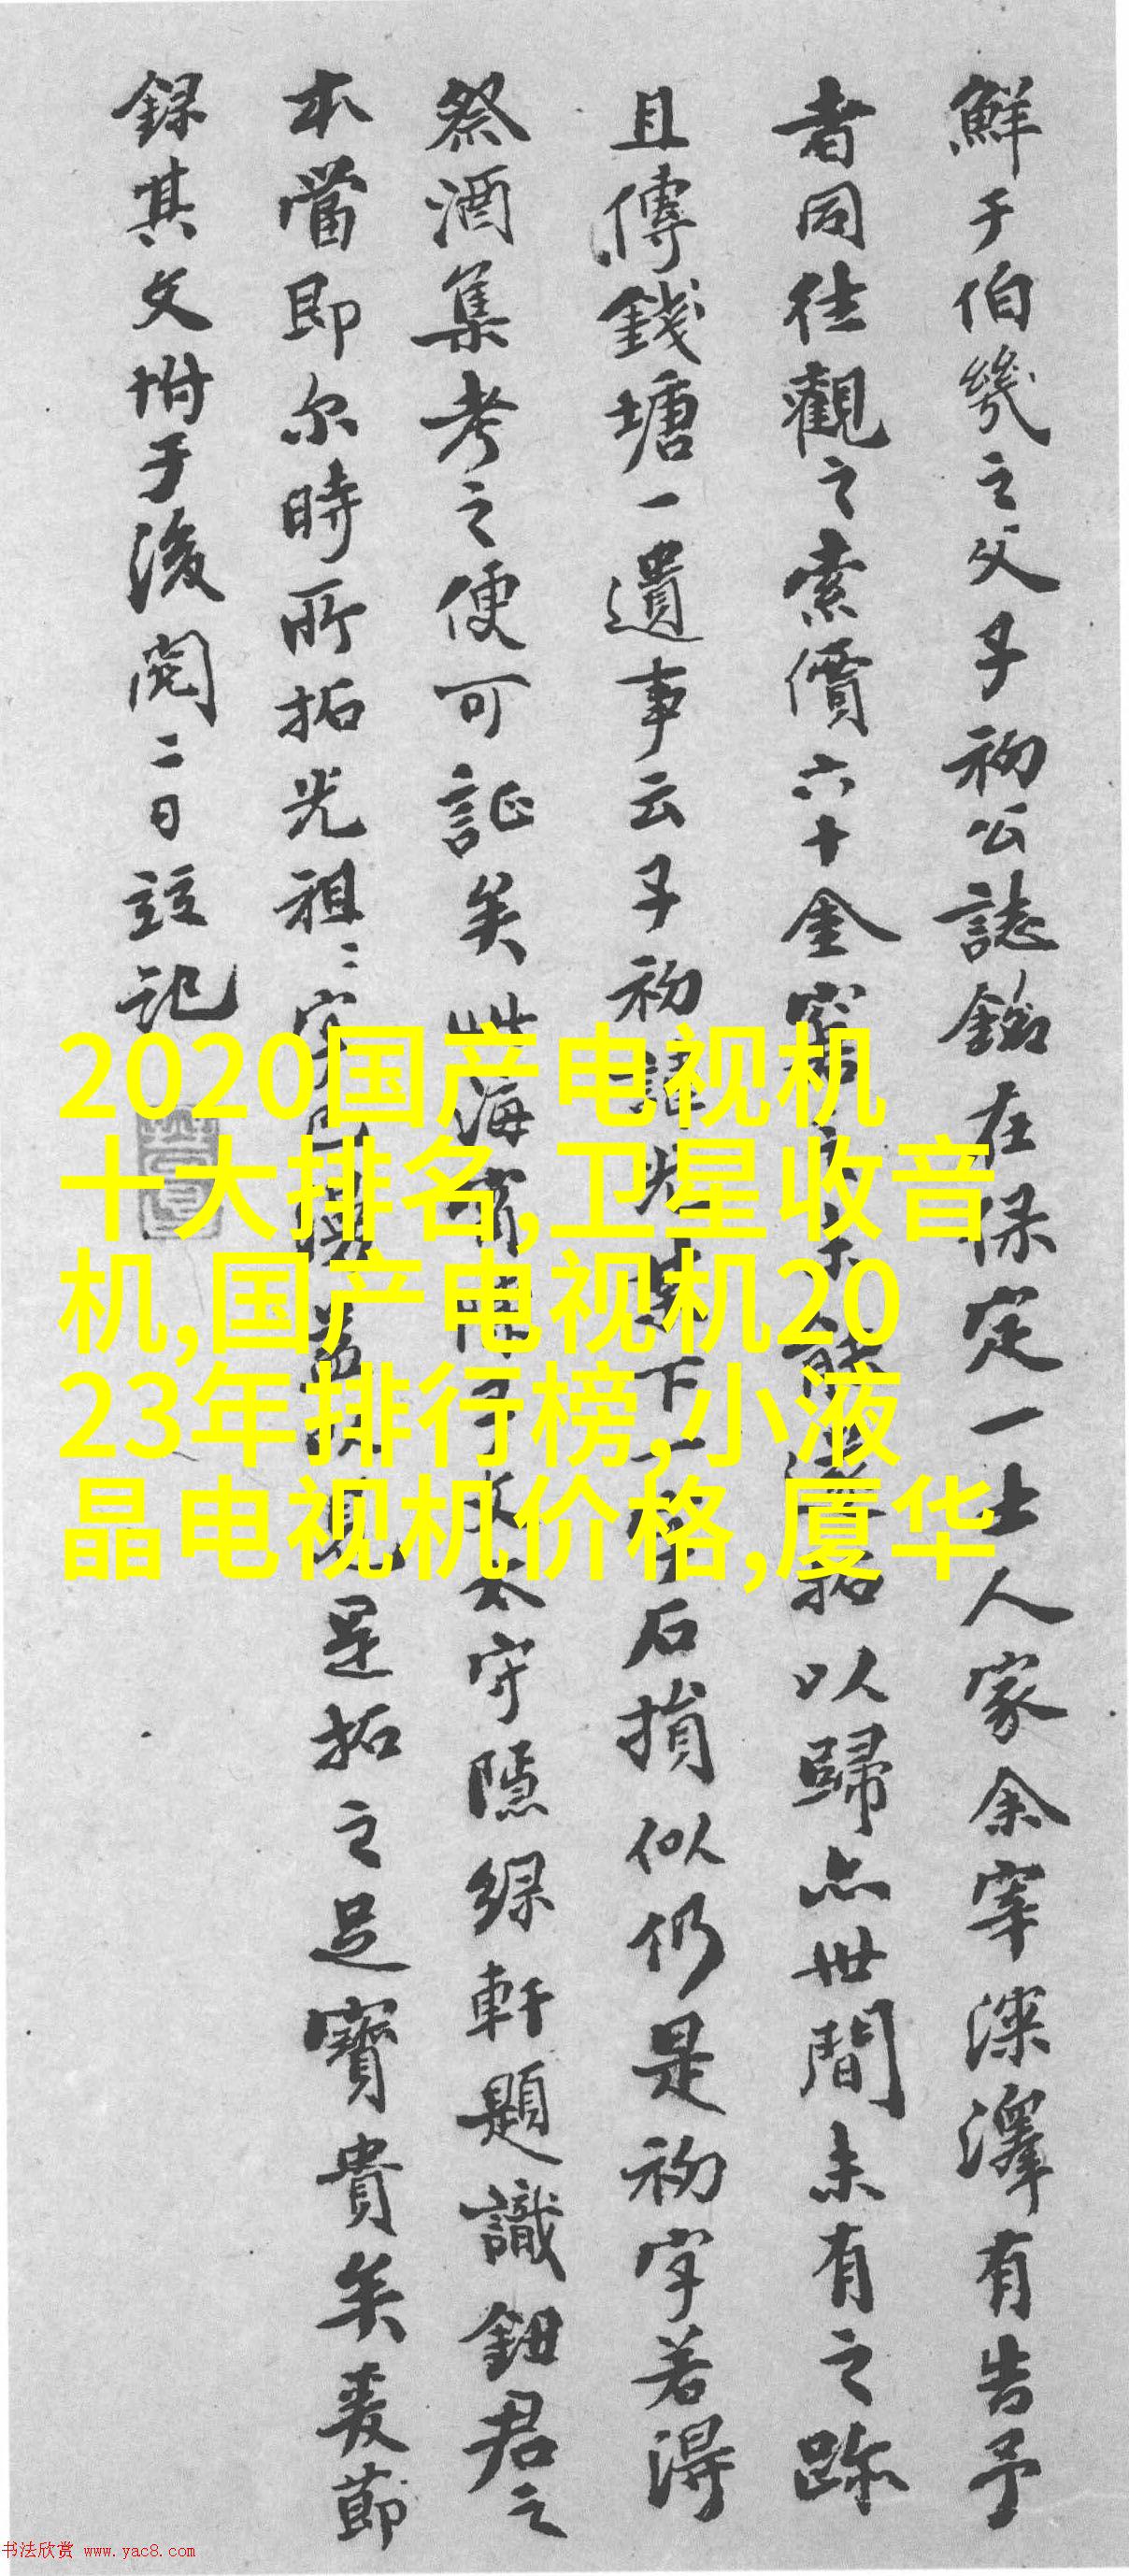 鮮于伯幾之父子初公誌銘在保定一士人家余宰深澤有告予
者同往觀之索價六十金窘
以歸亦世間未有之跡
且傳錢塘一遺事云子初諱光
下一字石損似仍是初字若得
祭酒集考之便可証矣
海
太守隱綠軒題識鈕君之
本當即尔時所拓光祖:字
見是拓之足寶貴矣爰節
錄其文坿于後閱二日諠記
2020国产电视机
十大排名,卫星收音
机,国产电视机20
23年排行榜,小液
晶电视机价格,厦华
书法欣赏 www.yac8.com